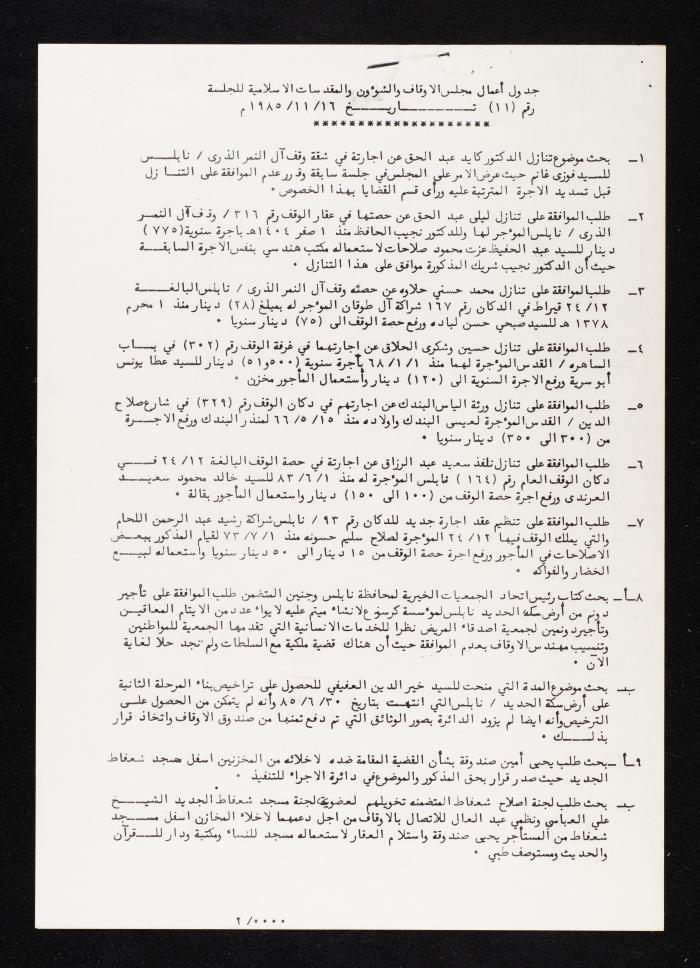 جدول أعمال مجلس الاوقاف والشوءون والمقدسات الاسلامية للجلسة
رقم (١١) تـــــــــاريــــــخ ١٩٨٥/١١/١٦ م
********************
١ــ بحث موضوع تنازل الدكتور كايد عبد الحق عن اجارتة في شقة وقف آل النمر الذرى / نابلــــس
للسيد فوزى غانم حيث عرض الامر على المجلس في جلسة سابقة وقرر عدم الموافقة على التنـــا زل
قبل تسديد الاجرة المترتبة عليه ورأى قسم القضايا بهذا الخصوص ٠
٢ــ طلب الموافقة على تنازل ليلى عبد الحق عن حصتها في عقار الوقف رقم ٣١٦ / وقف آل النمــر
الذرى / نابلس الموءجر لها وللدكتور نجيب الحافظ منذ ١ صفر ١٤٠٤هـ باجرة سنوية (٧٧٥)
دينار للسيد عبد الحفيظ عزت محمود صلاحات لاستعماله مكتب هندسي بنفس الاجرة السابقـــة
حيث أن الدكتور نجيب شريك المذكورة موافق على هذا التنازل ٠
٣ــ طلب الموافقة على تنازل محمد حسني حلاوه عن حصته وقف آل النمر الذرى / نابلس البالغــــة
٢٤/١٢ قيراط في الدكان رقم ١٦٧ شراكة آل طوقان الموءجر له بمبلغ (٢٨) دينار منذ ١ محرم
١٣٧٨ هـ للسيد صبحي حسن لباده ورفع حصة الوقف الى (٧٥) دينار سنويا ٠
٤ــ طلب الموافقة على تنازل حسين وشكرى الحلاق عن اجارتهما في غرفة الوقف رقم (٣٠٢) في بـــاب
الساهره / القدس الموءجرة لهما منذ ٦٨/١/١ بأجرة سنوية (٥٠٠و٥١) دينار للسيد عطا يونس
أبو سرية ورفع الاجرة السنوية الى (١٢٠) دينار وأستعمال المأجور مخزن ٠
٥ــ طلب الموافقة على تنازل ورثة الياس البندك عن اجارتهم في دكان الوقف رقم (٣٢٩) في شارع صلاح
الدين / القدس الموءجرة لعيسى البندك واولاده منذ ٦٦/٥/١٥ لمنذر البندك ورفع الاجـــرة
من (٣٠٠ الى ٣٥٠) دينار سنويا ٠
٦ــ طلب الموافقة على تنازل نلفذ سعيد عبد الرزاق عن اجارتة في حصة الوقف البالغة ٢٤/١٢ فــــي
دكان الوقف العام رقم (١٦٤) نابلس الموءجرة له منذ ٨٣/٦/١ للسيد خالد محمود سعيـــد
العرندى ورفع اجرة حصة الوقف من (١٠٠ الى ١٥٠) دينار واستعمال المأجور بقالة ٠
٧ــ طلب الموافقة على تنظيم عقد اجارة جديد للدكان رقم ٩٣ / نابلس شراكة رشيد عبد الرحمن اللحام
والتي يملك الوقف فيها ٢٤/١٢ الموءجرة لصلاح سليم حسونه منذ ٧٣/٧/١ لقيام المذكور ببعـــض
الاصلاحات في المأجور ورفع اجرة حصة الوقف من ١٥ دينار الى ٥٠ دينار سنويا وأستعماله لبيـــع
الخضار والفواكه ٠
٨ــأــ بحث كتاب رئيس اتحاد الجمعيات الخيرية لمحافظة نابلس وجنين المتضمن طلب الموافقة على تأجير
دونم من أرض سكة الحديد نابلس لموءسسة كرسوع لانشاء ميتم عليه لايواء عدد من الايتام المعاقيــن
وتأجير دونمين لجمعية اصدقاء المريض نظرا للخدمات الانسانية التي تقدمها الجمعية للمواطنين
وتنسيب مهندس الاوقاف بعدم الموافقة حيث أن هناك قضية ملكية مع السلطات ولم تجد حلا لغاية
الآن ٠
بــ بحث موضوع المدة التي منحت للسيد خير الدين العفيفي للحصول على تراخيص بناء المرحلة الثانية
على أرض سكة الحديد / نابلس التي انتهت بتاريخ ٨٥/٦/٣٠ وأنه لم يتمكن من الحصول علــى
الترخيص وأنه ايضا لم يزود الدائرة بصور الوثائق التي تم دفع ثمنها من صندوق الاوقاف واتخاذ قرار
بذلـــــك ٠
٩ــأــ بحث طلب يحيى أمين صندوقة بشأن القضية المقامة ضده لاخلائه من المخزنين اسفل مسجد شعفاط
الجديد حيث صدر قرار بحق المذكور والموضوع في دائرة الاجراء للتنفيذ ٠
بــ بحث طلب لجنة اصلاح شعفاط المتضمنه تخويلهم لعضوية لجنة مسجد شعفاط الجديد الشيـــخ
علي العباسي ونظمي عبد العال للاتصال بالاوقاف من اجل دعمهما لاخلاء المخازن اسفل مســـجد
شعفاط من المستأجر يحيى صندوقة واستلام العقار لاستعماله مسجد للنساء ومكتبة ودار للـــقرآن
والحديث ومستوصف طبي ٠
٢ /٠٠٠٠